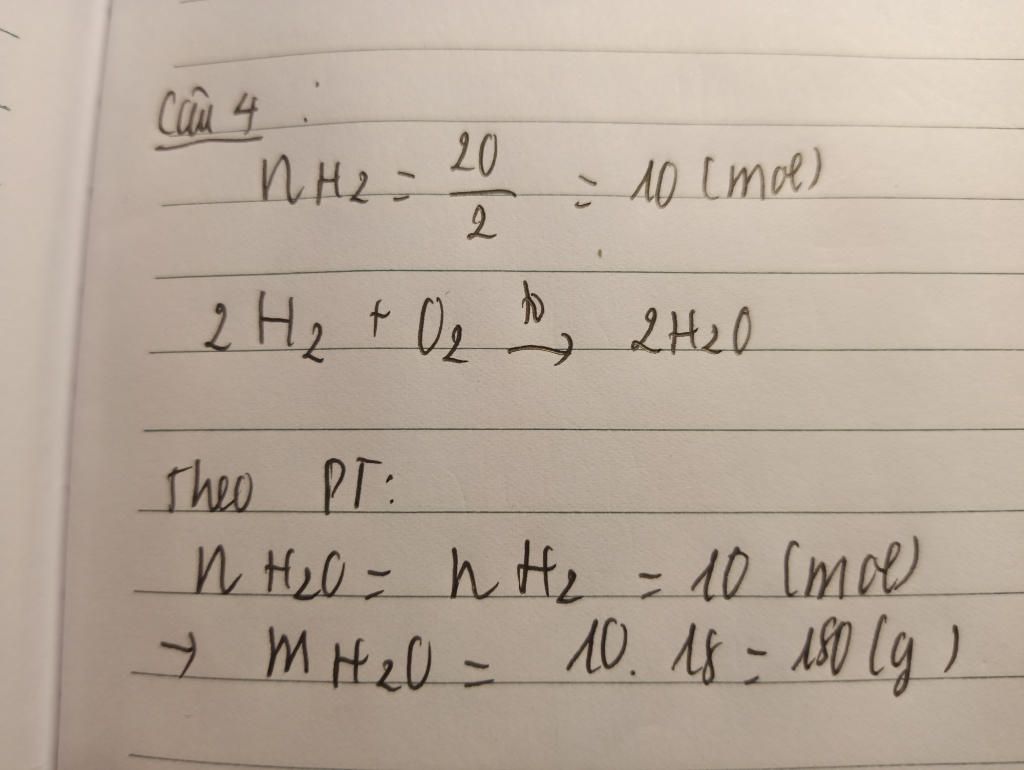 Câu 4 :
nH2 = 20/2 = 10 (mol)
2H2 + O2 →(t°) 2H2O
Theo PT:
nH2O = nH2 = 10 (mol)
→ mH2O = 10. 18 = 180 (g)